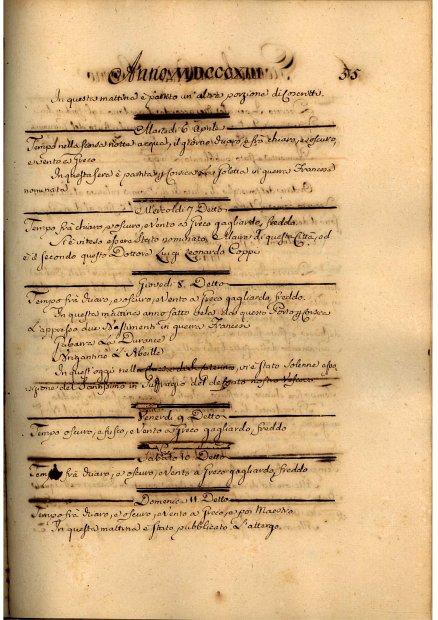 Anno MDCCCXIII 55
In questa mattina è partito un' altra porzione di Coscritti.
Martedì 6 Aprile
Tempo nella scorsa notte acqua, il giorno chiaro, e frà chiaro, e oscuro,
e vento a Greco
In questa sera è partita Corsica la Goletta di guerra Francese
nominata
Mercoldì 7 Detto
Tempo frà chiaro, e oscuro, e vento a Greco gagliardo, freddo.
Si è inteso essere stato nominato Maire di questa Città, ed
è il secondo questo Dottore Luigi Leonardo Coppi
Giovedì 8 Detto
Tempo frà chiaro, e oscuro, e vento a Greco gagliardo, freddo.
In questa mattina anno fatto vela da questo Porto
L'appresso due Bastimenti in guerra Francesi
Gabarra La Durance
Brigantino L'Abeille
In quest'oggi nella vi è stato Solenne espo
sizione del Santissimo in Suffragio del defonto nostro Vescovo
Venerdì 9 Detto
Tempo oscuro, e fusco, e vento a Greco gagliardo, freddo
Sabato 10 Detto
Tempo frà chiaro, e oscuro, e vento a Greco gagliardo, freddo
Domenica 11 Detto
Tempo frà chiaro, e oscuro, e vento a Greco, e poi Maestro
In questa mattina è stato pubblicato